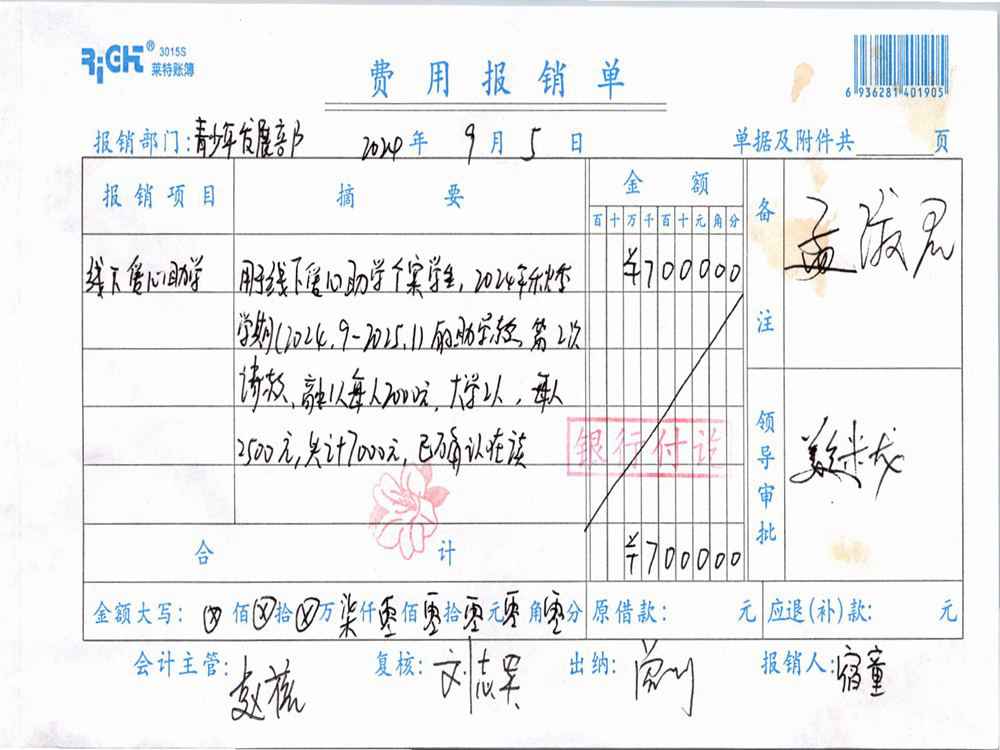 RiGHT® 3015S
莱特账簿
费用报销单
6 936281 401905
报销部门:青少年发展部 2024年9月5日 单据及附件共 页
报销项目 摘要 金额 备注
百十万千百十元角分
线下爱心助学 用于线下爱心助学个案学生,2024年秋季 ¥700000
学期(2024.9-2025.1)的助学款,第2次
请款,高中1人每人2000元,大学2人,每人
2500元,共计7000元,已确认在读
银行付讫
领导审批
合计 ¥700000
金额大写:ⓧ佰ⓧ拾ⓧ万柒仟零佰零拾零元零角零分 原借款: 元 应退(补)款: 元
会计主管: 复核:刘志军 出纳: 报销人:宿童